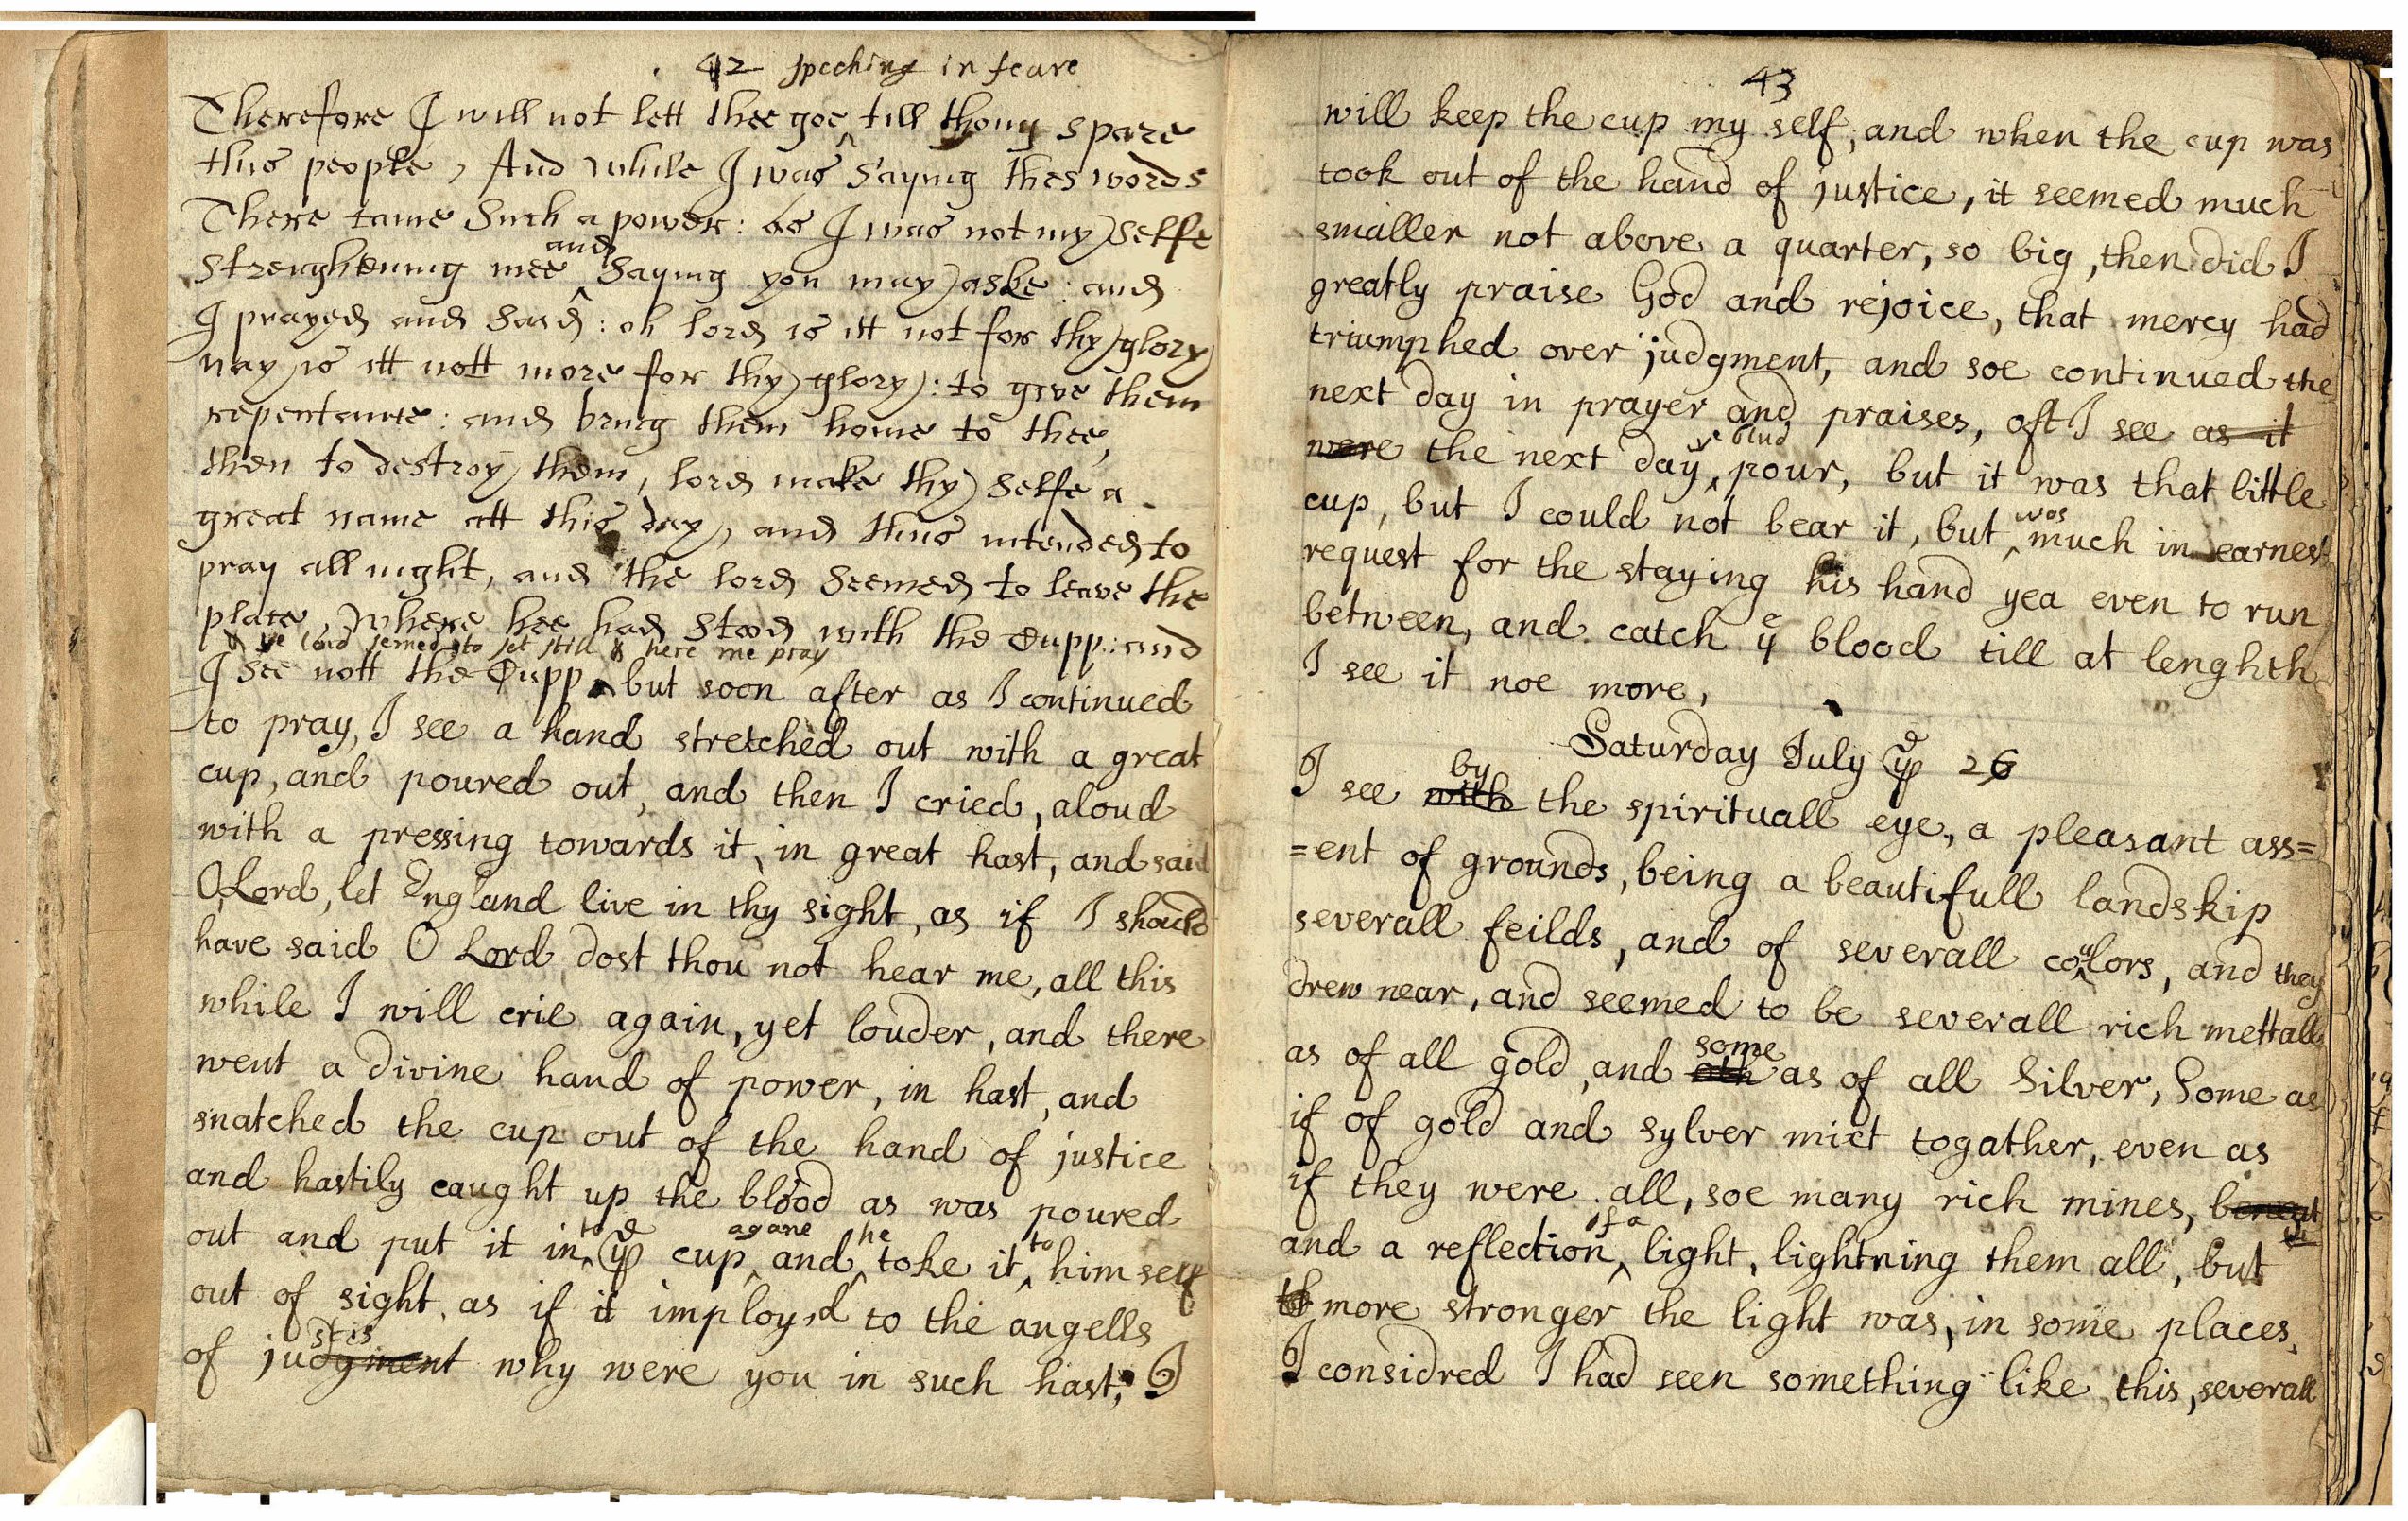 42 speching in feare
Therefore I will not lett thee goe till thou spare
this people, And while I was Saying thes words
There came Such a power: as I was not my Selfe
and
Strenghening mee ^ Saying you may aske: and
I prayed and Said: oh lord is itt not for thy glory
nay is itt nott more for thy glory: to give them
repentance: and bring them home to thee,
then to destroy them, lord make thy Selfe a
great name att this day, and thus intended to
pray all night, and the lord Seemed to leave the
place, where hee had Stood with the Cupp: and
& ye lord semed to set still & here me pray
I See nott the Cupp ^ but soon after as I continued
to pray, I see a hand stretched out with a great
cup, and poured out, and then I cried, aloud
with a pressing towards it, in great hast, and said
O Lord, let England live in thy sight, as if I should
have said O Lord dost thou not hear me, all this
while I will crie again, yet louder, and there
went a divine hand of power, in hast, and
snatched the cup out of the hand of justice
and hastily caught up the blood as was poured
to agane he to
out and put it in ^ ye cup ^ and ^ toke it ^ himself
out of sight, as if it imployd to the angells
stis
of judgment why were you in such hast, I
43
will keep the cup my self, and when the cup was
took out of the hand of justice, it seemed much
smaller not above a quarter, so big, then did I
greatly praise God and rejoice, that mercy had
triumphed over judgment, and soe continued the
next day in prayer and praises, oft I see as it
ye blud
were the next day ^ pour, but it was that little
was
cup, but I could not bear it, but ^ much in earnest
request for the staying his hand yea even to run
between, and catch ye blood till at lenghth
I see it noe more,
Saturday July ye 26
by
I see with the spirituall eye, a pleasant ass=
=ent of grounds, being a beautifull landskip
severall feilds, and of severall coulors, and they
drew near, and seemed to be severall rich mettalls
some
as of all gold, and oth as of all Silver, Some as
if of gold and sylver mixt togather, even as
if they were all, soe many rich mines, beneat
of a
and a reflection ^ light, lightning them all, but
more stronger the light was, in some places,
I considred I had seen something like this, severall